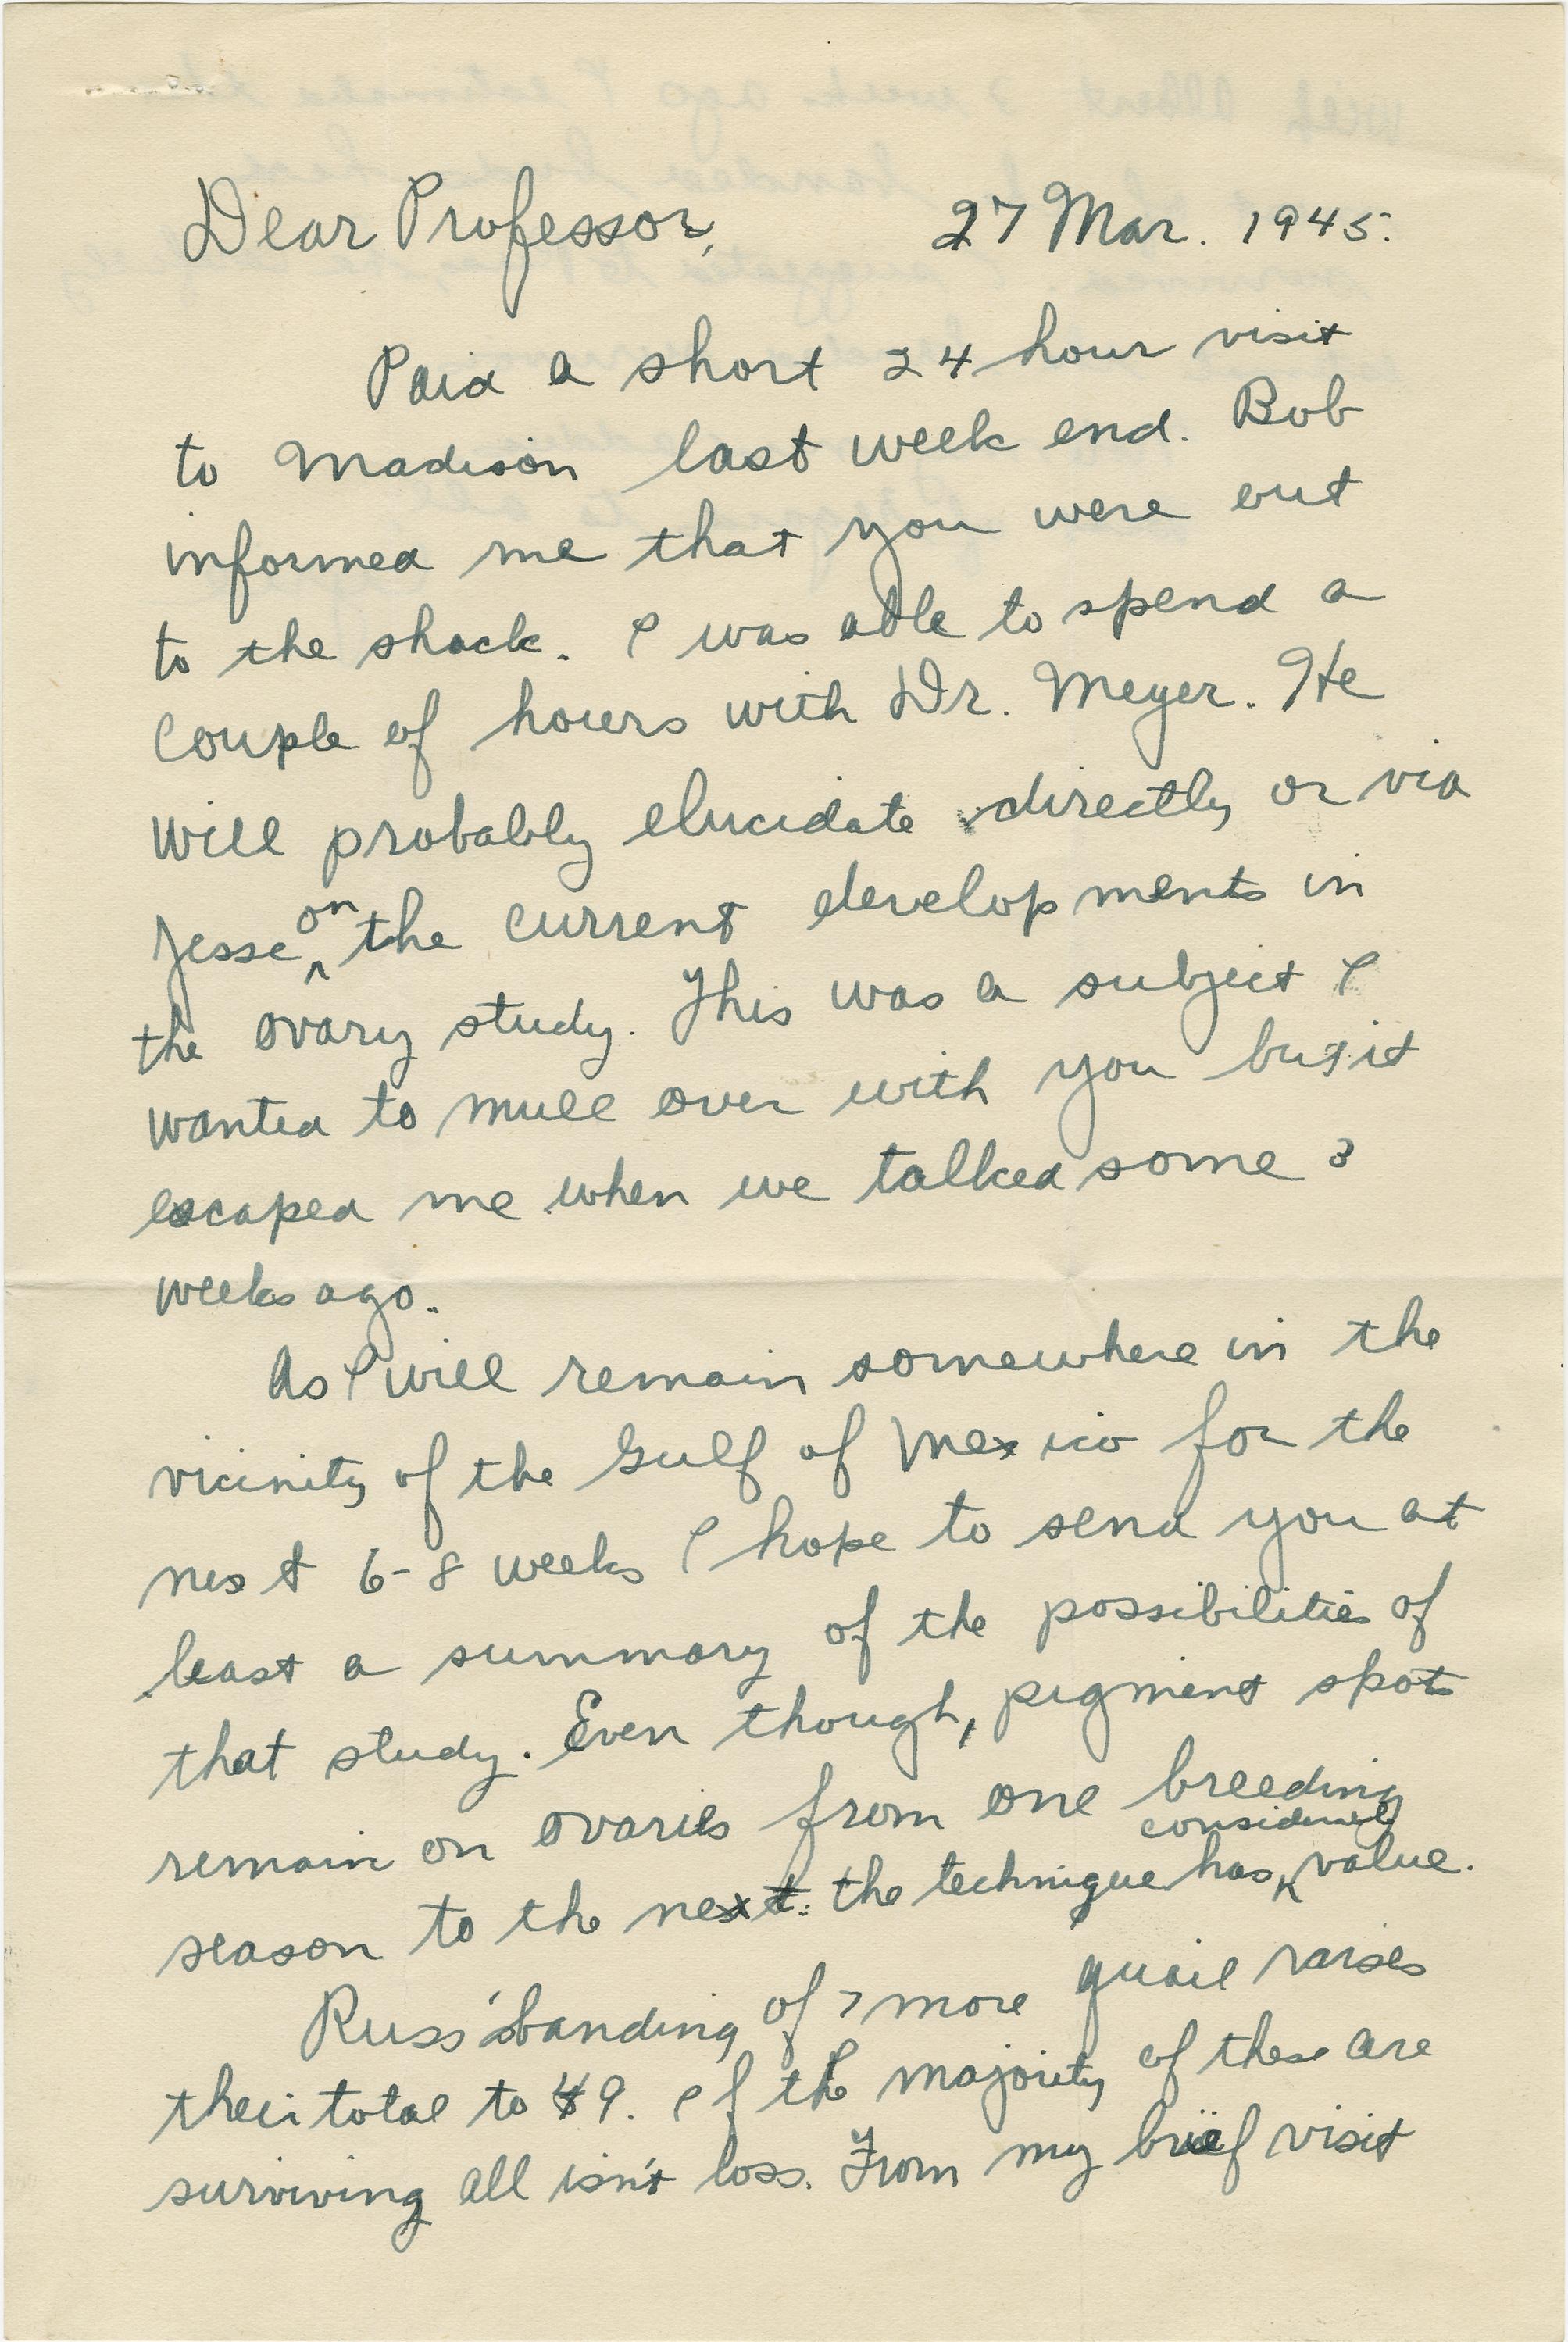 Dear Professor, 27 Mar. 1945.
Paid a short 24 hour visit
to Madison last week end. Bob
informed me that you were out
to the shack. I was able to spend a
couple of hours with Dr. Meyer. He
will probably elucidate directly or via
Jesse on the current developments in
the ovary study. This was a subject I
wanted to mull over with you but it
escaped me when we talked some 3
weeks ago.
As I will remain somewhere in the
vicinity of the Gulf of Mexico for the
next 6-8 weeks I hope to send you at
least a summary of the possibilities of
that study. Even though, pigment spots
remain on ovaries from one breeding
season to the next the technique has considerable value.
Russ' banding of 7 more quail raises
their total to 49. If the majority of these are
surviving all isn't loss. From my brief visit